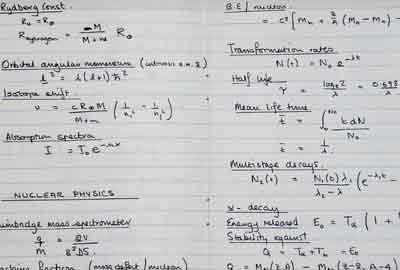 Rydberg Const.
R∞ = R∞
R Hydrogen = M / M+m R∞
Orbital angular momentum
l² = l(l+1)ħ²
Isotope shift.
υ = cR∞M / M+m (1/n₁² - 1/n₂²)
Absorption spectra
I = I₀e
NUCLEAR PHYSICS
mass spectrometer
q/M = / B²DS
fraction (mass defect / nucleon)
B.E / nucleon
= c² [Mn + (Mn - Mn) -
Transformation rates
N(t) = N₀ e^-λt
Half life
τ = loge2 / λ = 0.693 / λ
Mean life time
t̄ = ∫ t dN / N₀
t̄ = 1/λ
Multistage decays.
N₂(t) = N₁(0) λ₁ / λ₂ - λ₁ (e^-λ₁t -
α - decay
Energy released E₀ = Tα (1 +
Stability against
Q = Tα + Tb = E₀
Q = (Z,A) - (Z-2, A-4)